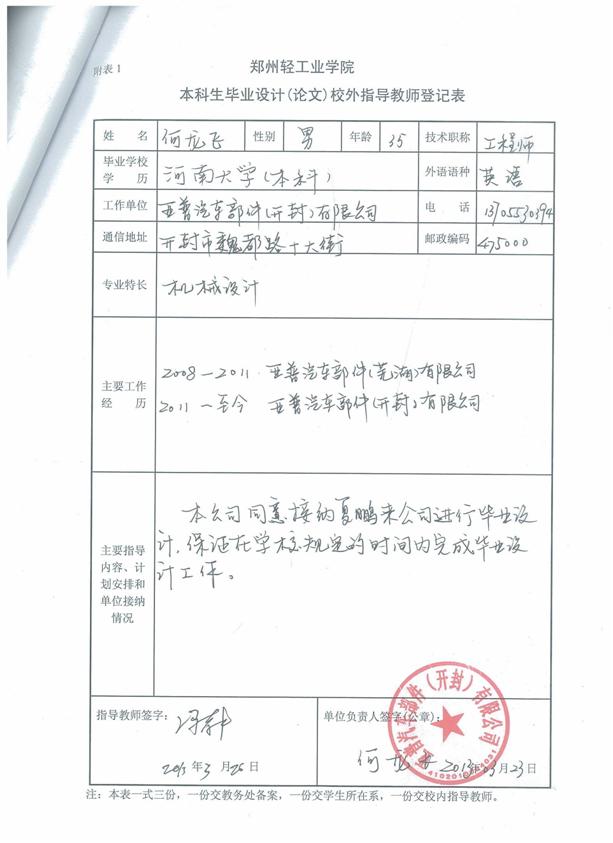 附表1
郑州轻工业学院
本科生毕业设计(论文)校外指导教师登记表
姓 名 何龙飞 性别 男 年龄 35 技术职称 工程师
毕业学校 学 历 河南大学(本科) 外语语种 英语
工作单位 亚普汽车部件(开封)有限公司 电 话 13705530394
通信地址 开封市魏都路十大街 邮政编码 475000
专业特长 机械设计
主要工作 经 历
2008—2011 亚普汽车部件(芜湖)有限公司
2011—至今 亚普汽车部件(开封)有限公司
主要指导内容、计划安排和单位接纳情况
本公司同意接纳夏鹏来公司进行毕业设
计,保证在学校规定的时间内完成毕业设
计工作。
指导教师签字: 单位负责人签字(公章):
何龙飞
2013年3月26日 2013年03月23日
亚普汽车部件(开封)有限公司
注:本表一式三份,一份交教务处备案,一份交学生所在系,一份交校内指导教师。